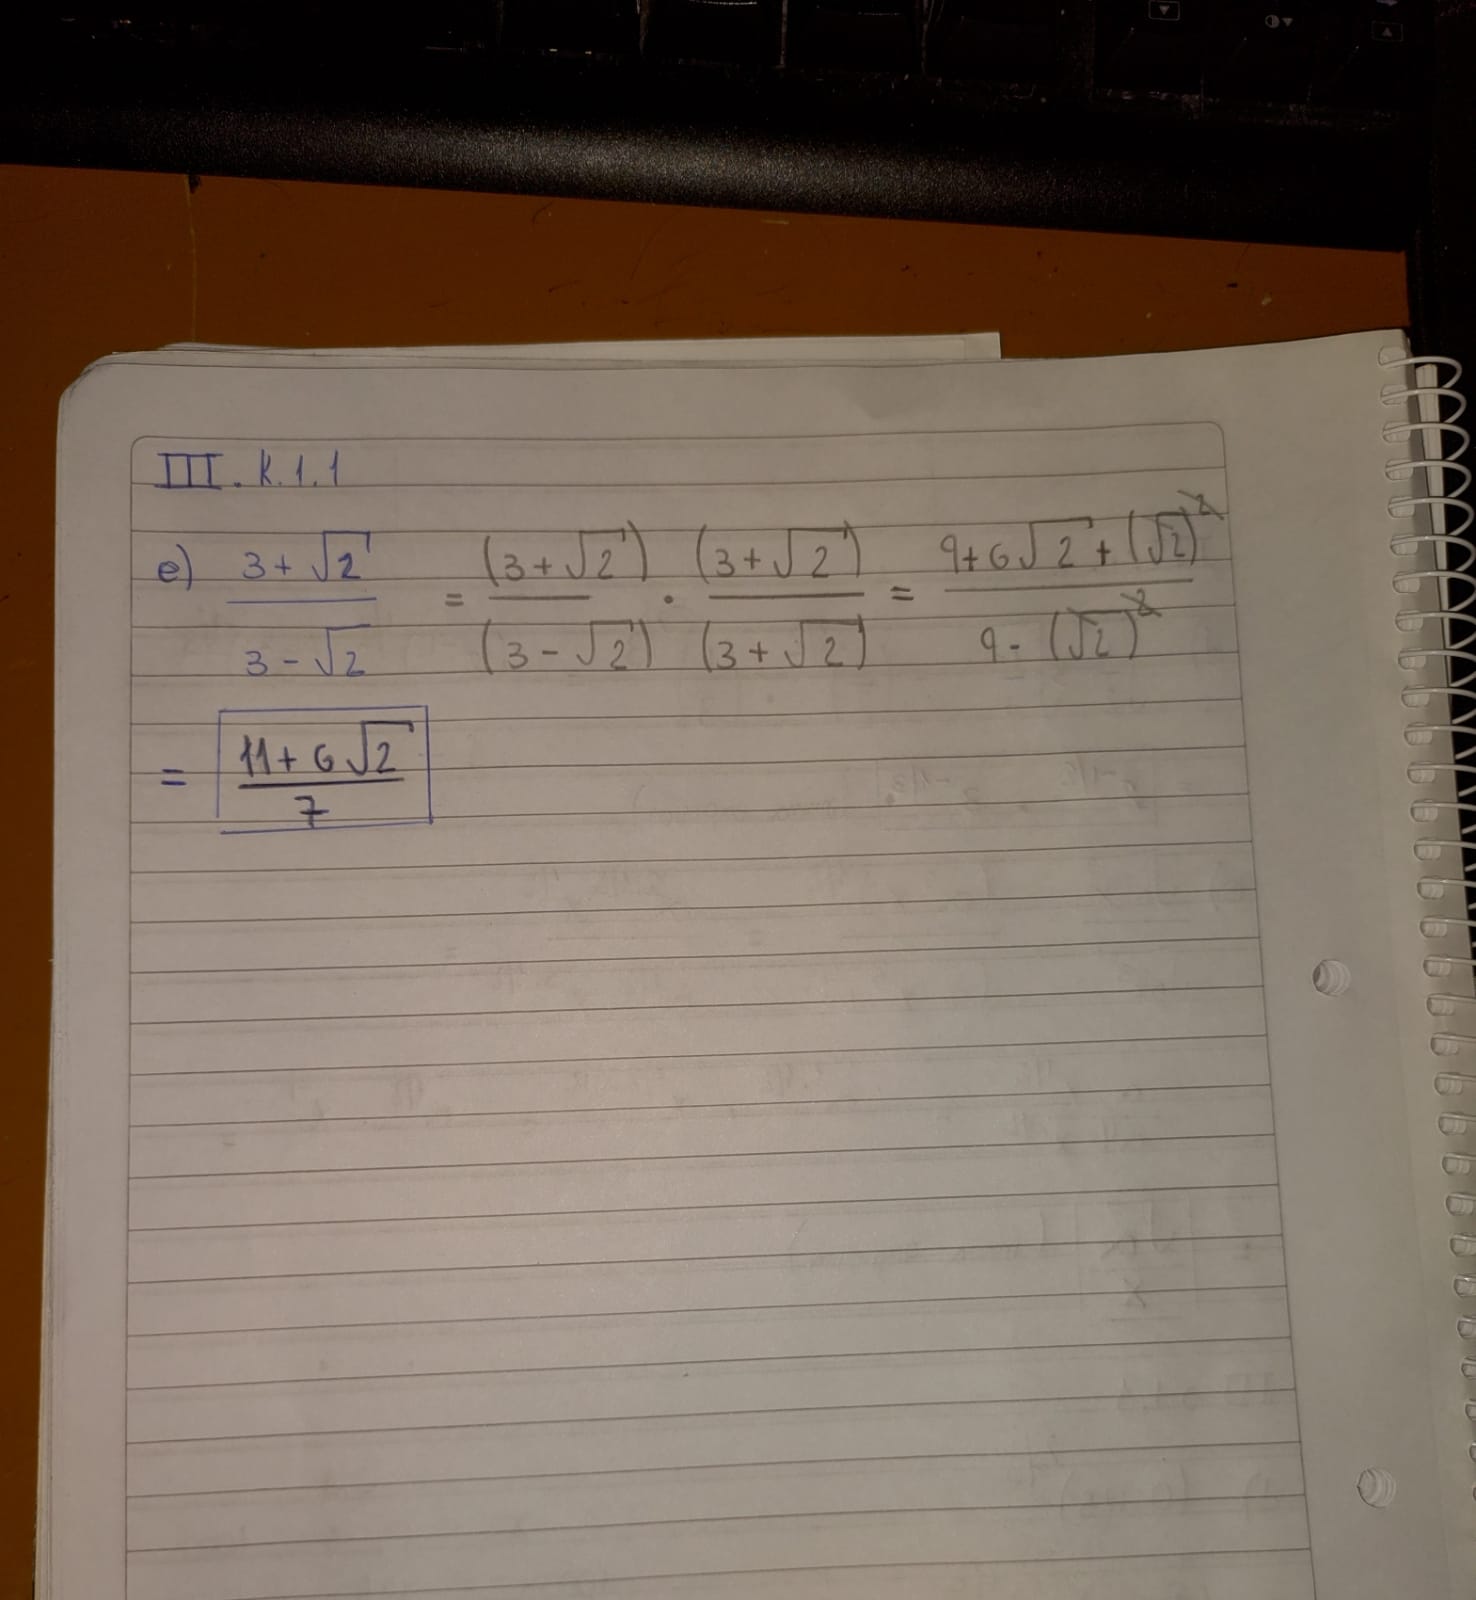 III. K.1.1
e) (3+√2)/(3-√2) = (3+√2)/(3-√2) · (3+√2)/(3+√2) = (9+6√2+(√2)²)/(9-(√2)²)
= (11+6√2)/7